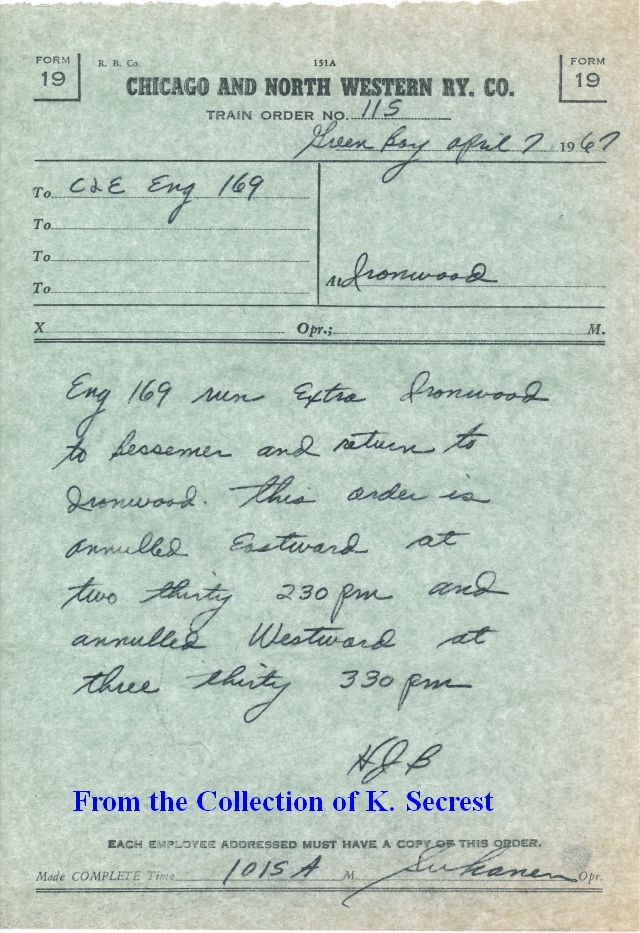 FORM 19
R. B. Co. 151A
FORM 19
CHICAGO AND NORTH WESTERN RY. CO.
TRAIN ORDER NO. 115
Green Bay April 7 1967
To C&E Eng 169
To
To
To
At Ironwood
X Opr.; M.
Eng 169 run Extra Ironwood
to Bessemer and return to
Ironwood. This order is
annulled Eastward at
two thirty 230 pm and
annulled Westward at
three thirty 330 pm
HJB
From the Collection of K. Secrest
EACH EMPLOYEE ADDRESSED MUST HAVE A COPY OF THIS ORDER.
Made COMPLETE Time 1015 A M. Opr.